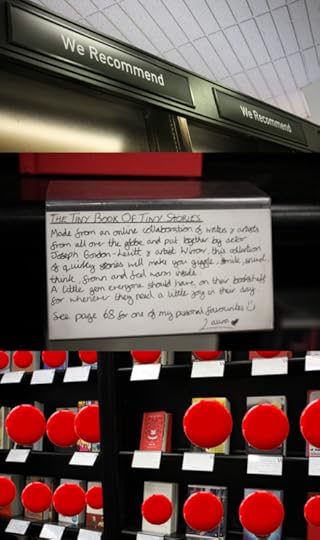 We Recommend
We Recommend
THE TINY BOOK OF TINY STORIES
Made from an online collaboration of writers & artists
from all over the globe and put together by actor
Joseph Gordon-Levitt & artist Wirrow, this collection
of quirky stories will make you giggle, smile,
think, frown and feel warm inside.
A little gem everyone should have on their bookshelf
for whenever they need a little joy in their day
See page 68 for one of my personal favourites
Laura